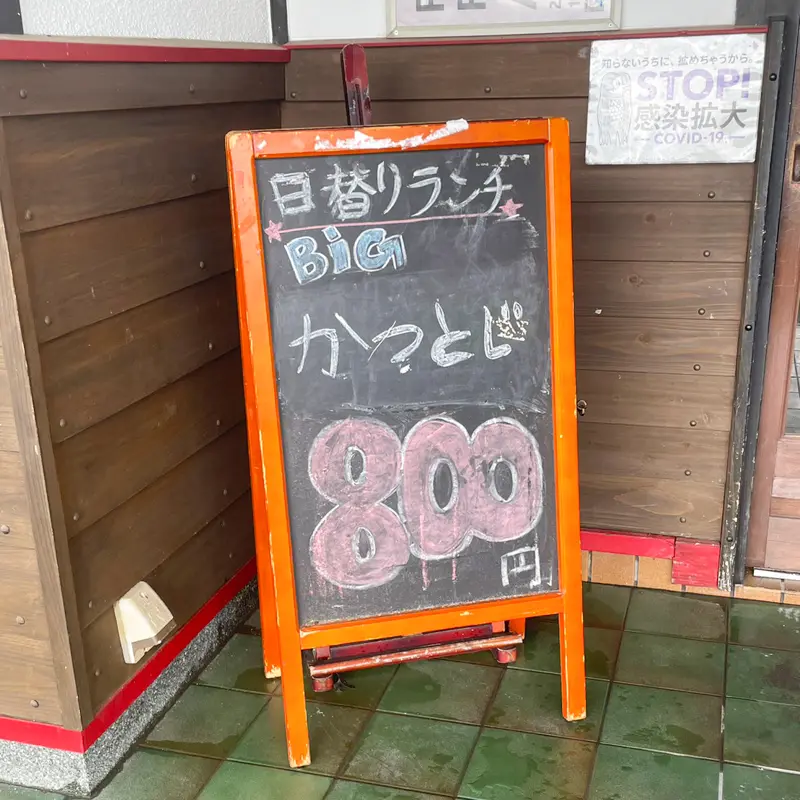 日替りランチ
BiG
かつとじ
800
円
知らないうちに、拡めちゃうから。
STOP!
感染拡大
COVID-19